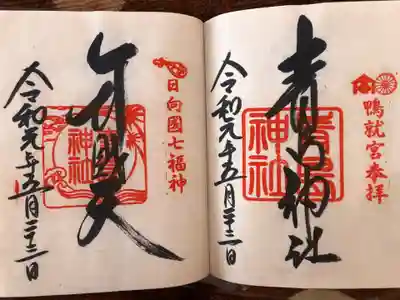 鴨就宮奉拝
青島神社
青島
神社
令和元年五月二十三日
日向國七福神
弁財天
神社
令和元年五月二十三日